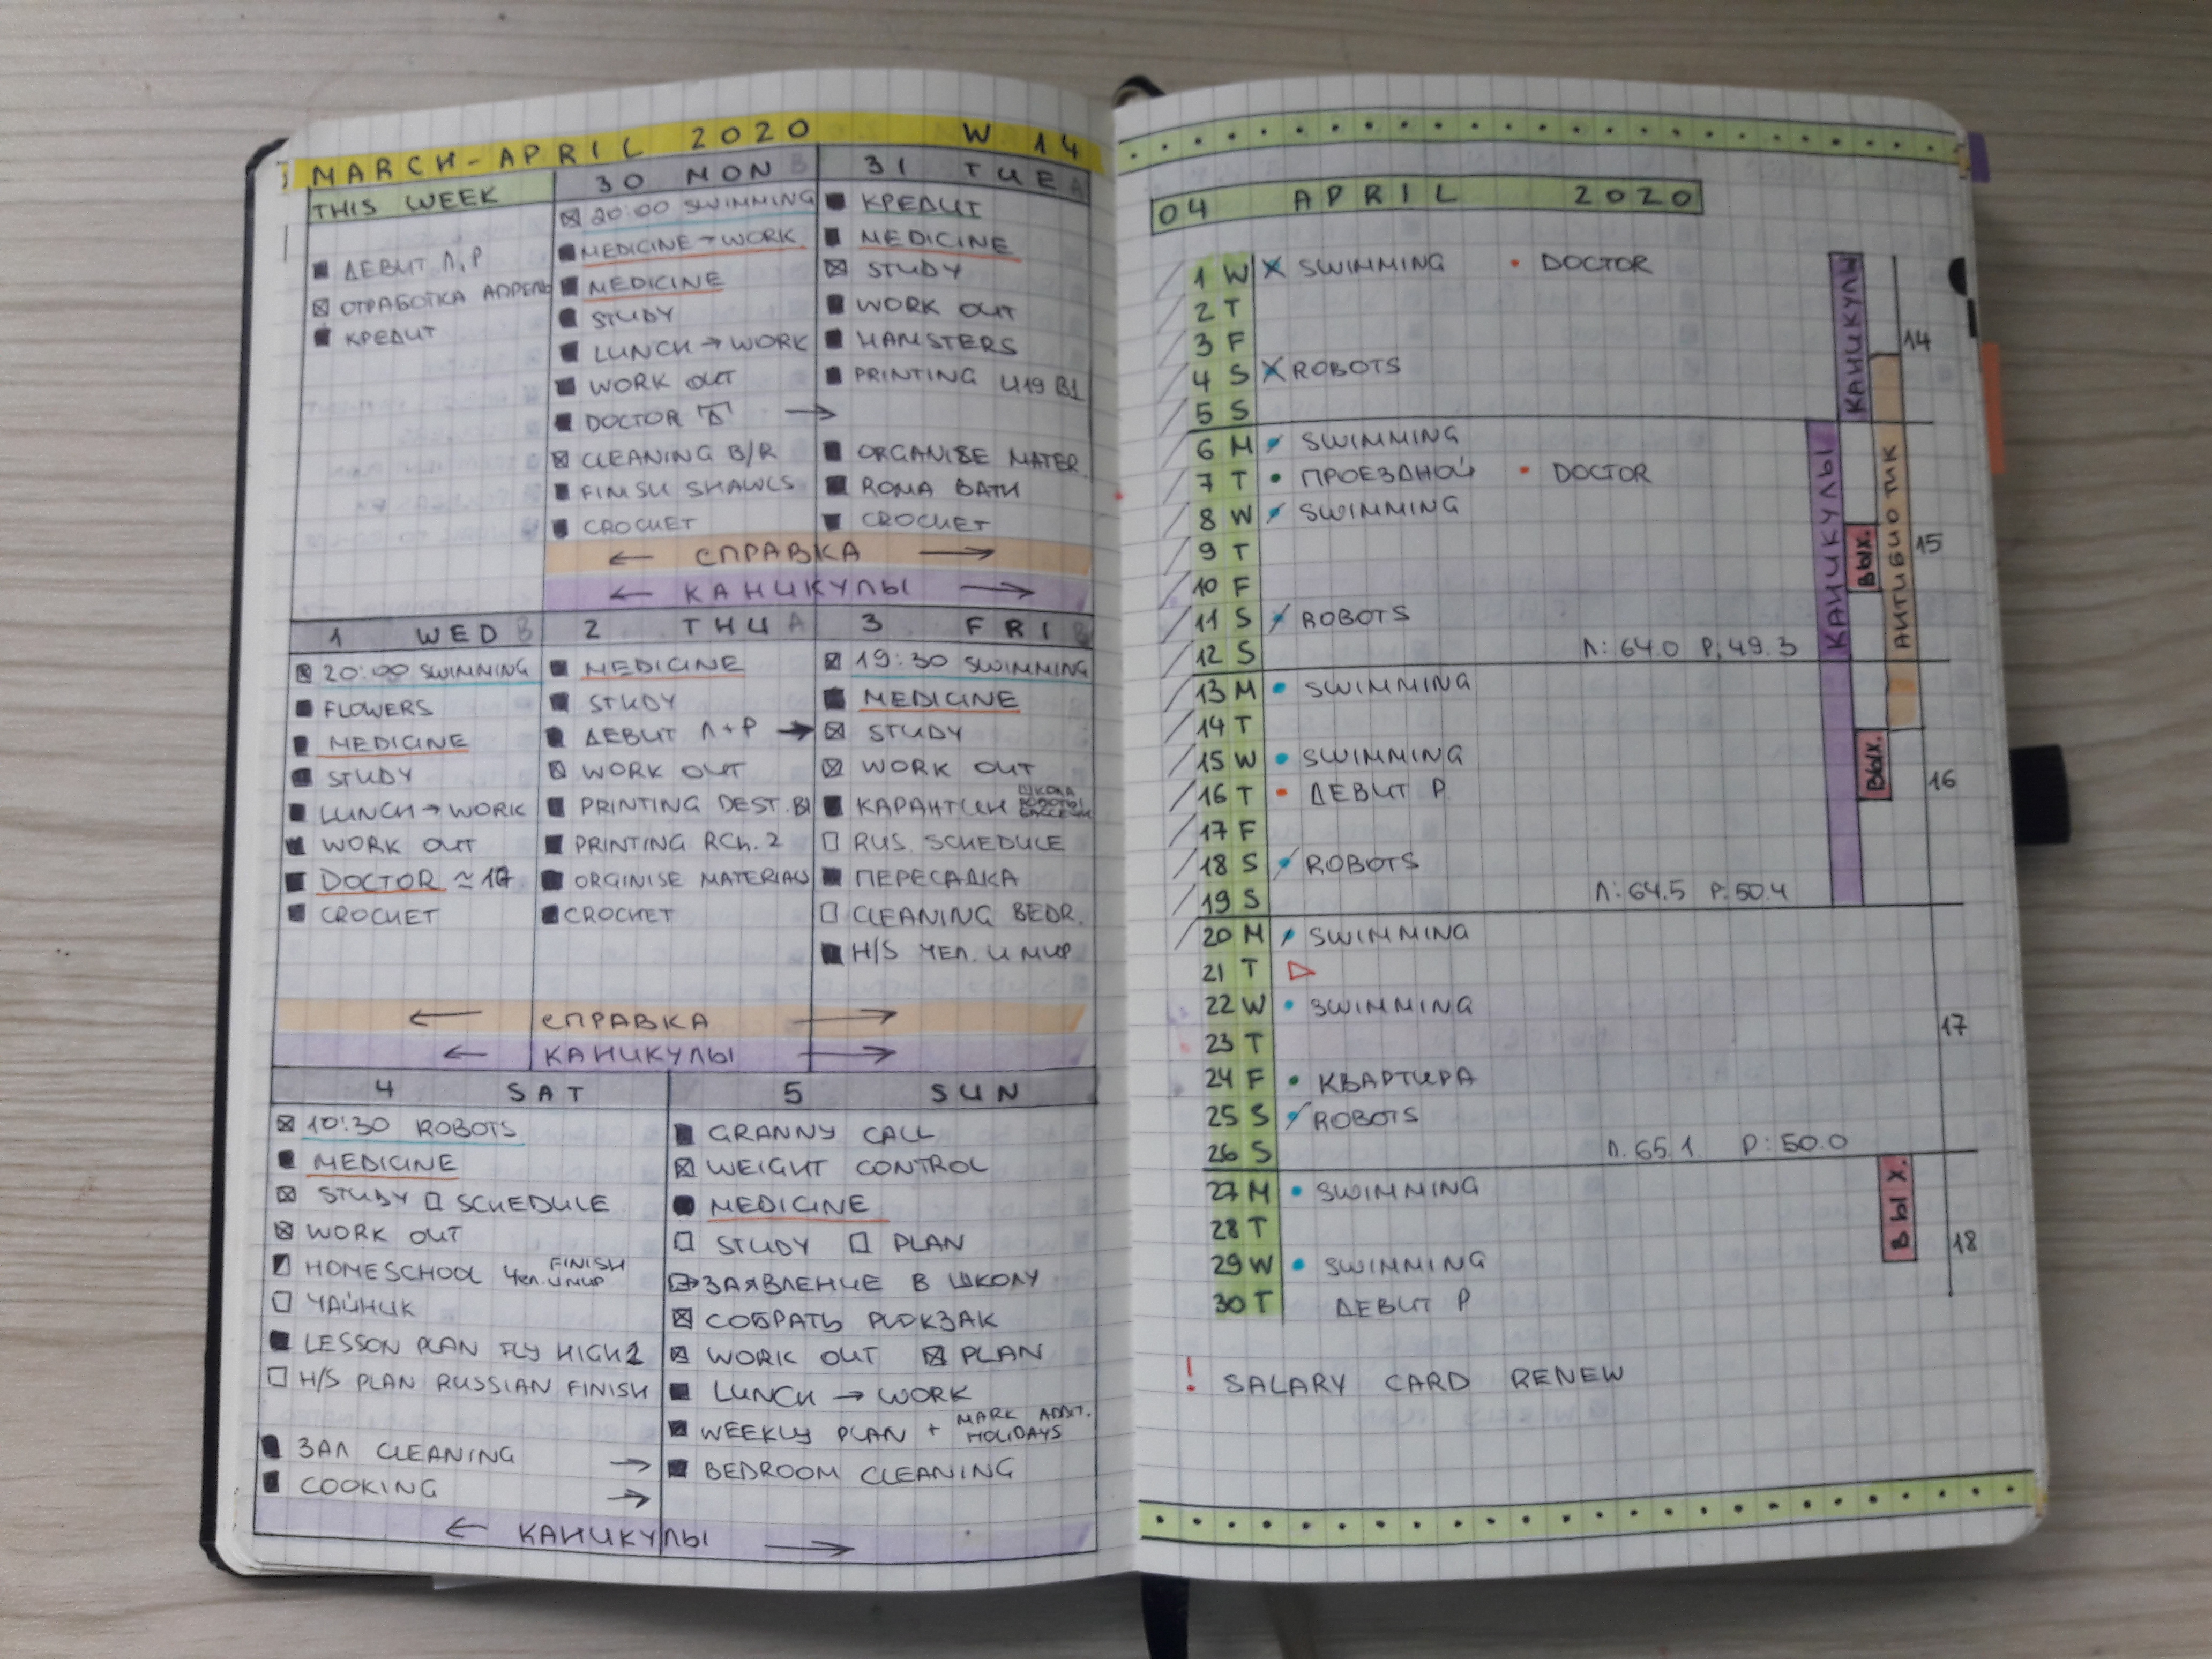 MARCH-APRIL 2020 W 14
THIS WEEK
ДЕБИТ Л, Р
ОТРАБОТКА АПРЕЛЬ
КРЕДИТ
30 MON B
20:00 SWIMMING
MEDICINE → WORK
MEDICINE
STUDY
LUNCH → WORK
WORK OUT
DOCTOR →
CLEANING B/R
FINISH SHAWLS
CROCHET
31 TUE A
КРЕДИТ
MEDICINE
STUDY
WORK OUT
HAMSTERS
PRINTING U19 B1
ORGANISE MATER.
ROMA BATH
CROCHET
← СПРАВКА →
← КАНИКУЛЫ →
1 WED B
20:00 SWIMMING
FLOWERS
MEDICINE
STUDY
LUNCH → WORK
WORK OUT
DOCTOR ≈ 17
CROCHET
2 THU A
MEDICINE
STUDY
ДЕБИТ Л+Р →
WORK OUT
PRINTING DEST. B1
PRINTING RCh. 2
ORGINISE MATERIALS
CROCHET
3 FRI B
19:30 SWIMMING
MEDICINE
STUDY
WORK OUT
КАРАНТИН ШКОЛА РОБОТЫ БАССЕЙН
RUS. SCHEDULE
ПЕРЕСАДКА
CLEANING BEDR.
H/S ЧЕЛ. И МИР
← СПРАВКА →
← КАНИКУЛЫ →
4 SAT
10:30 ROBOTS
MEDICINE
STUDY SCHEDULE
WORK OUT
HOMESCHOOL ЧЕЛ. И МИР FINISH
ЧАЙНИК
LESSON PLAN FLY HIGH 2
H/S PLAN RUSSIAN FINISH
ЗАЛ CLEANING →
COOKING →
5 SUN
GRANNY CALL
WEIGHT CONTROL
MEDICINE
STUDY PLAN
ЗАЯВЛЕНИЕ В ШКОЛУ
СОБРАТЬ РЮКЗАК
WORK OUT PLAN
LUNCH → WORK
WEEKLY PLAN + MARK ADDIT. HOLIDAYS
BEDROOM CLEANING
← КАНИКУЛЫ →
04 APRIL 2020
1 W SWIMMING • DOCTOR
2 T
3 F
4 S ROBOTS
5 S
6 M SWIMMING
7 T • ПРОЕЗДНОЙ • DOCTOR
8 W SWIMMING
9 T
10 F
11 S ROBOTS
12 S Л: 64.0 Р: 49.3
13 M • SWIMMING
14 T
15 W • SWIMMING
16 T • ДЕБИТ Р
17 F
18 S ROBOTS
19 S Л: 64.5 Р: 50.4
20 M SWIMMING
21 T
22 W • SWIMMING
23 T
24 F • КВАРТИРА
25 S ROBOTS
26 S Л. 65.1. Р: 50.0
27 M • SWIMMING
28 T
29 W • SWIMMING
30 T ДЕБИТ Р
! SALARY CARD RENEW
КАНИКУЛЫ
14
КАНИКУЛЫ
ВЫХ.
АНТИБИОТИК
15
ВЫХ.
16
17
ВЫХ.
18